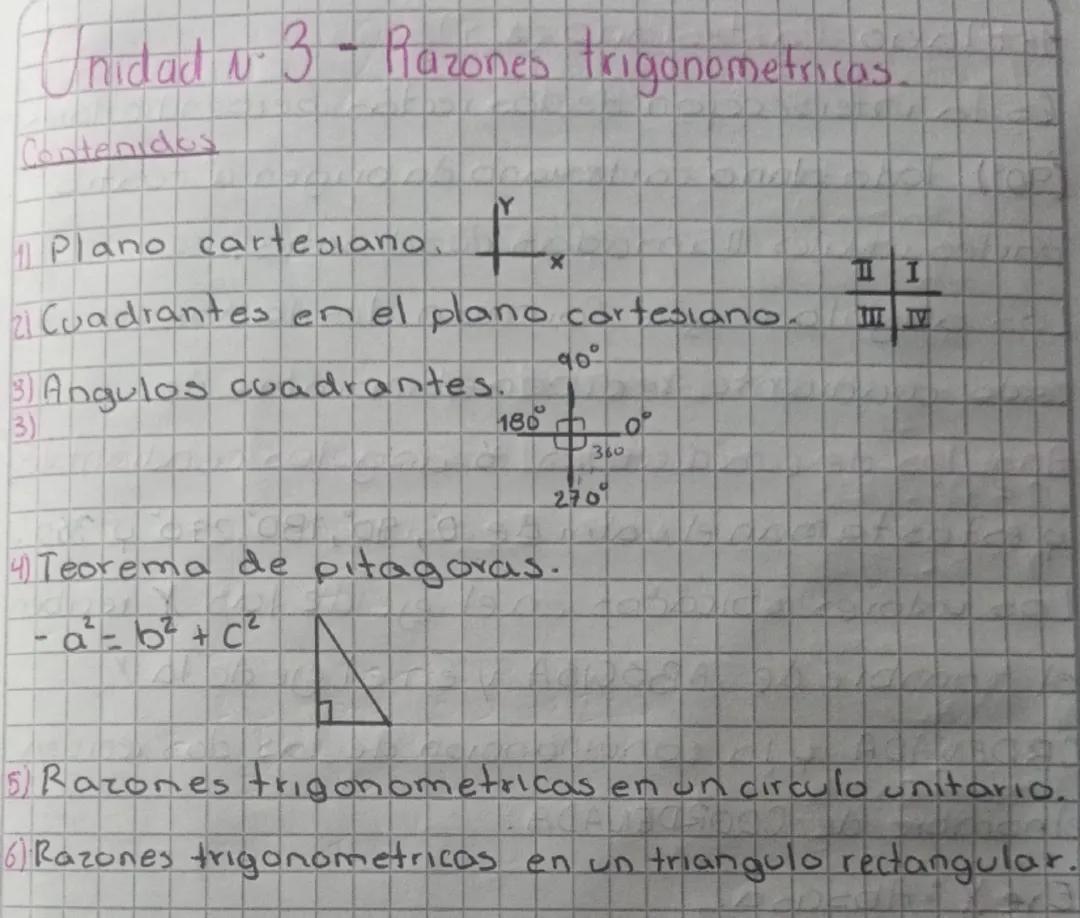 Unidad N. 3 - Razones trigonometricas.
Contenidos
1) Plano cartesiano.
Y
X
2) Cuadrantes en el plano cartesiano.
II I
III IV
3) Angulos cuadrantes.
3)
90°
180° 0°
360
270°
4) Teorema de pitagoras.
- a² = b² + c²
5) Razones trigonometricas en un circulo unitario.
6) Razones trigonometricas en un triangulo rectangular.